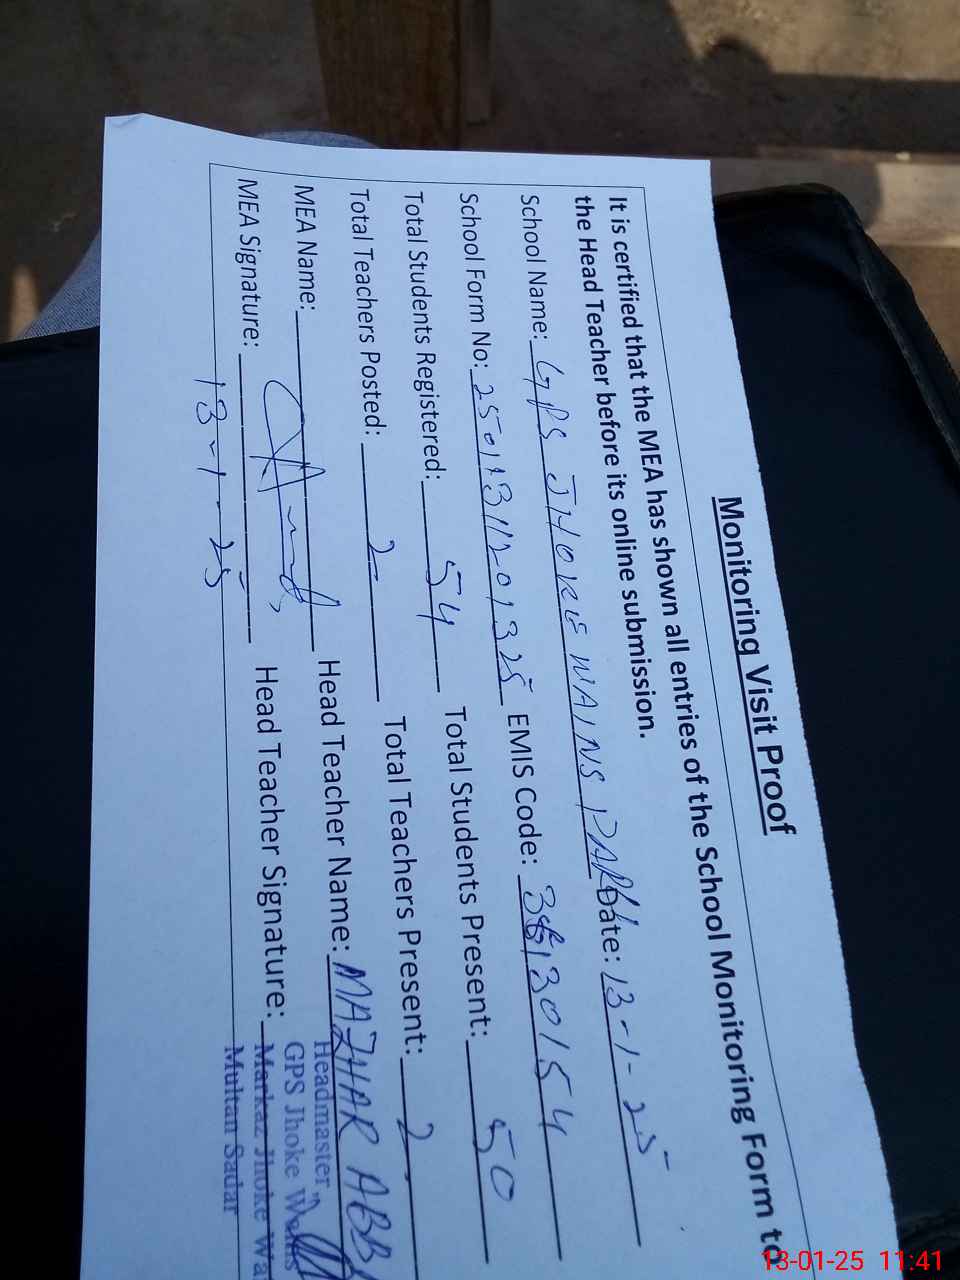 Monitoring Visit Proof
It is certified that the MEA has shown all entries of the School Monitoring Form to
the Head Teacher before its online submission.
School Name: GPS JHOKE WAINS Date: 13-1-25
School Form No: EMIS Code:
Total Students Registered: 54 Total Students Present: 50
Total Teachers Posted: 2 Total Teachers Present: 2
MEA Name: Head Teacher Name: MAZHAR ABB
MEA Signature: Head Teacher Signature:
13-1-25
Headmaster
GPS Jhoke Wains
Markaz Jhoke Wa
Multan Sadar
13-01-25 11:41